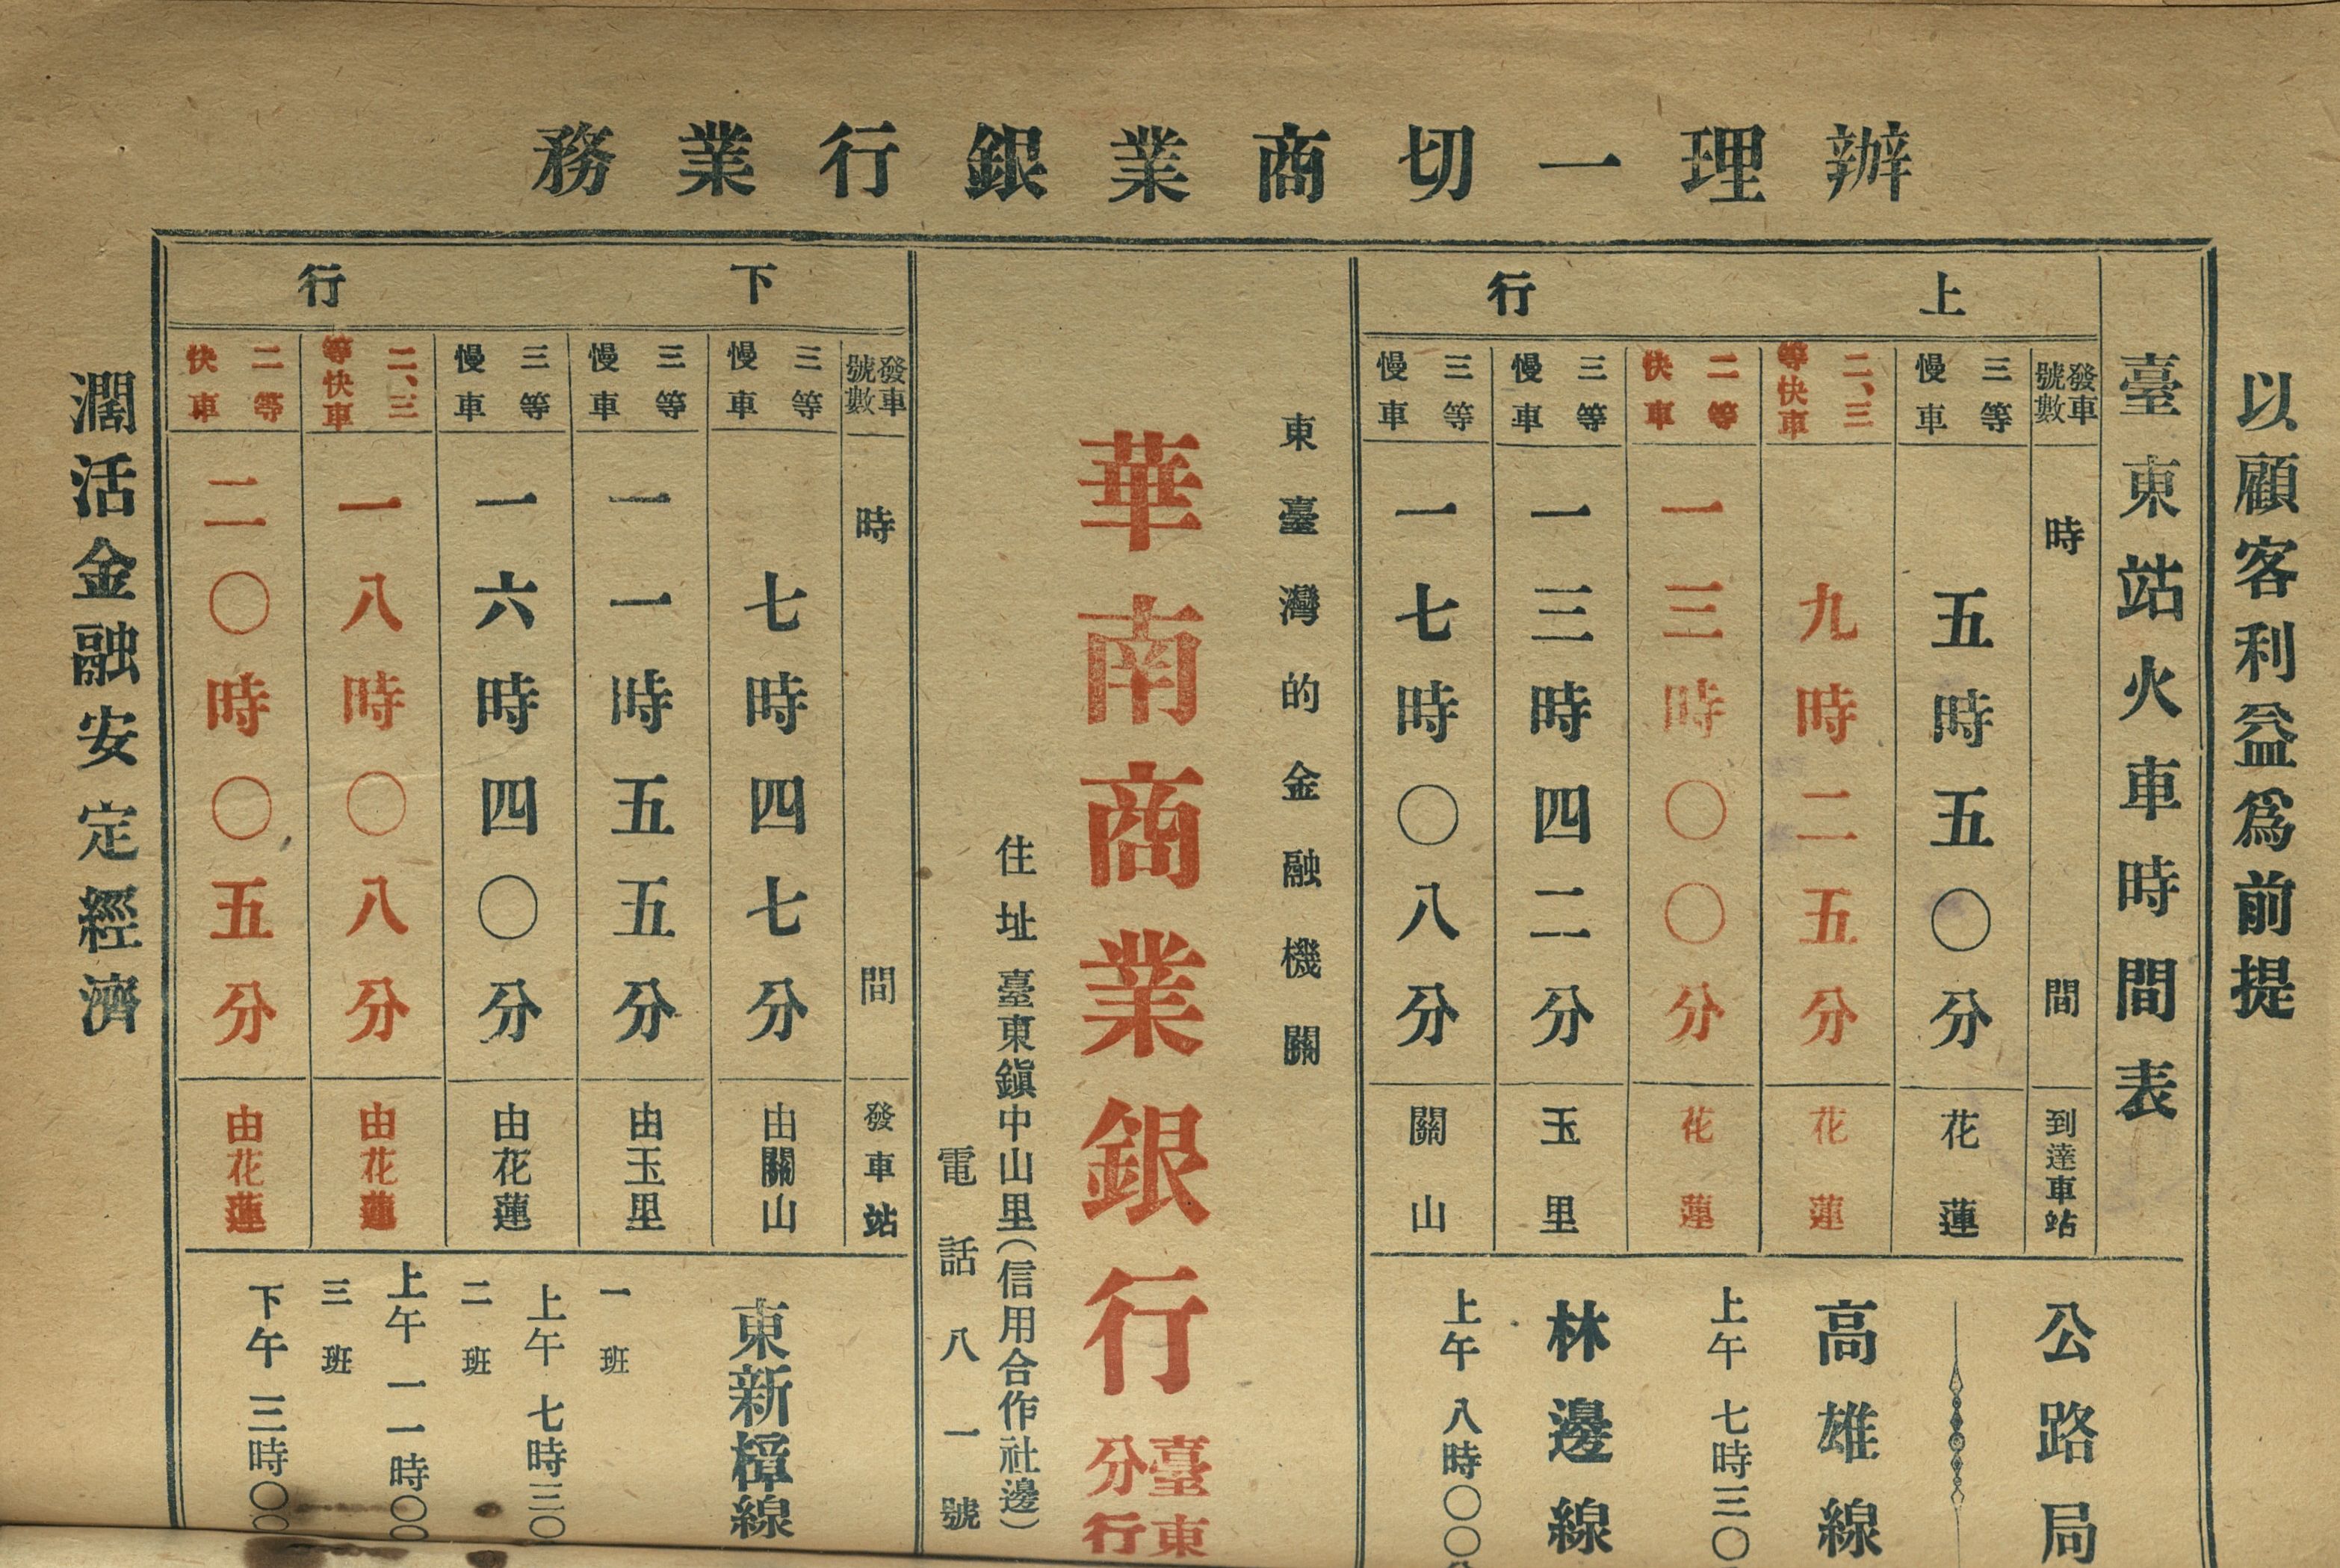 辦理一切商業銀行業務
以顧客利益爲前提
臺東站火車時間表
上行
發車號數 時間 到達車站
三等慢車 五時五〇分 花蓮
二、三等快車 九時二五分 花蓮
二等快車 一三時〇〇分 花蓮
三等慢車 一三時四二分 玉里
三等慢車 一七時〇八分 關山
公路局
高雄線
上午七時三〇
林邊線
上午八時〇〇
東臺灣的金融機關
華南商業銀行臺東分行
住址臺東鎭中山里(信用合作社邊)
電話八一號
下行
發車號數 時間 發車站
三等慢車 七時四七分 由關山
三等慢車 一一時五五分 由玉里
三等慢車 一六時四〇分 由花蓮
二、三等快車 一八時〇八分 由花蓮
二等快車 二〇時〇五分 由花蓮
東新樟線
一班
上午七時三〇
二班
上午一一時〇〇
三班
下午三時〇〇
濶活金融安定經濟